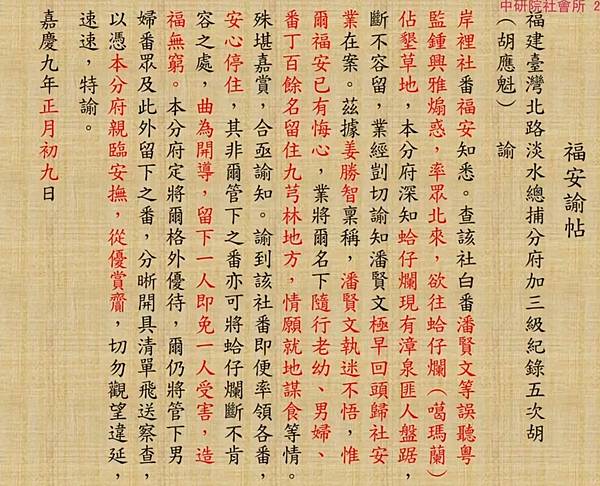 中研院社會所 2
福安諭帖
福建臺灣北路淡水總捕分府加三級紀錄五次胡
（胡應魁）　諭
岸裡社番福安知悉。查該社白番潘賢文等誤聽粵
監鍾興雅煽惑，率眾北來，欲往蛤仔爛（噶瑪蘭）
佔墾草地，本分府深知蛤仔爛現有漳泉匪人盤踞，
斷不容留，業經剴切諭知潘賢文極早回頭歸社安
業在案。茲據姜勝智稟稱，潘賢文執迷不悟，惟
爾福安已有悔心，業將爾名下隨行老幼、男婦、
番丁百餘名留住九芎林地方，情願就地謀食等情。
殊堪嘉賞，合亟諭知。諭到該社番即便率領各番，
安心停住，其非爾管下之番亦可將蛤仔爛斷不肯
容之處，曲為開導，留下一人即免一人受害，造
福無窮。本分府定將爾格外優待，爾仍將管下男
婦番眾及此外留下之番，分晰開具清單飛送察查，
以憑本分府親臨安撫，從優賞齎，切勿觀望違延，
速速，特諭。
嘉慶九年正月初九日